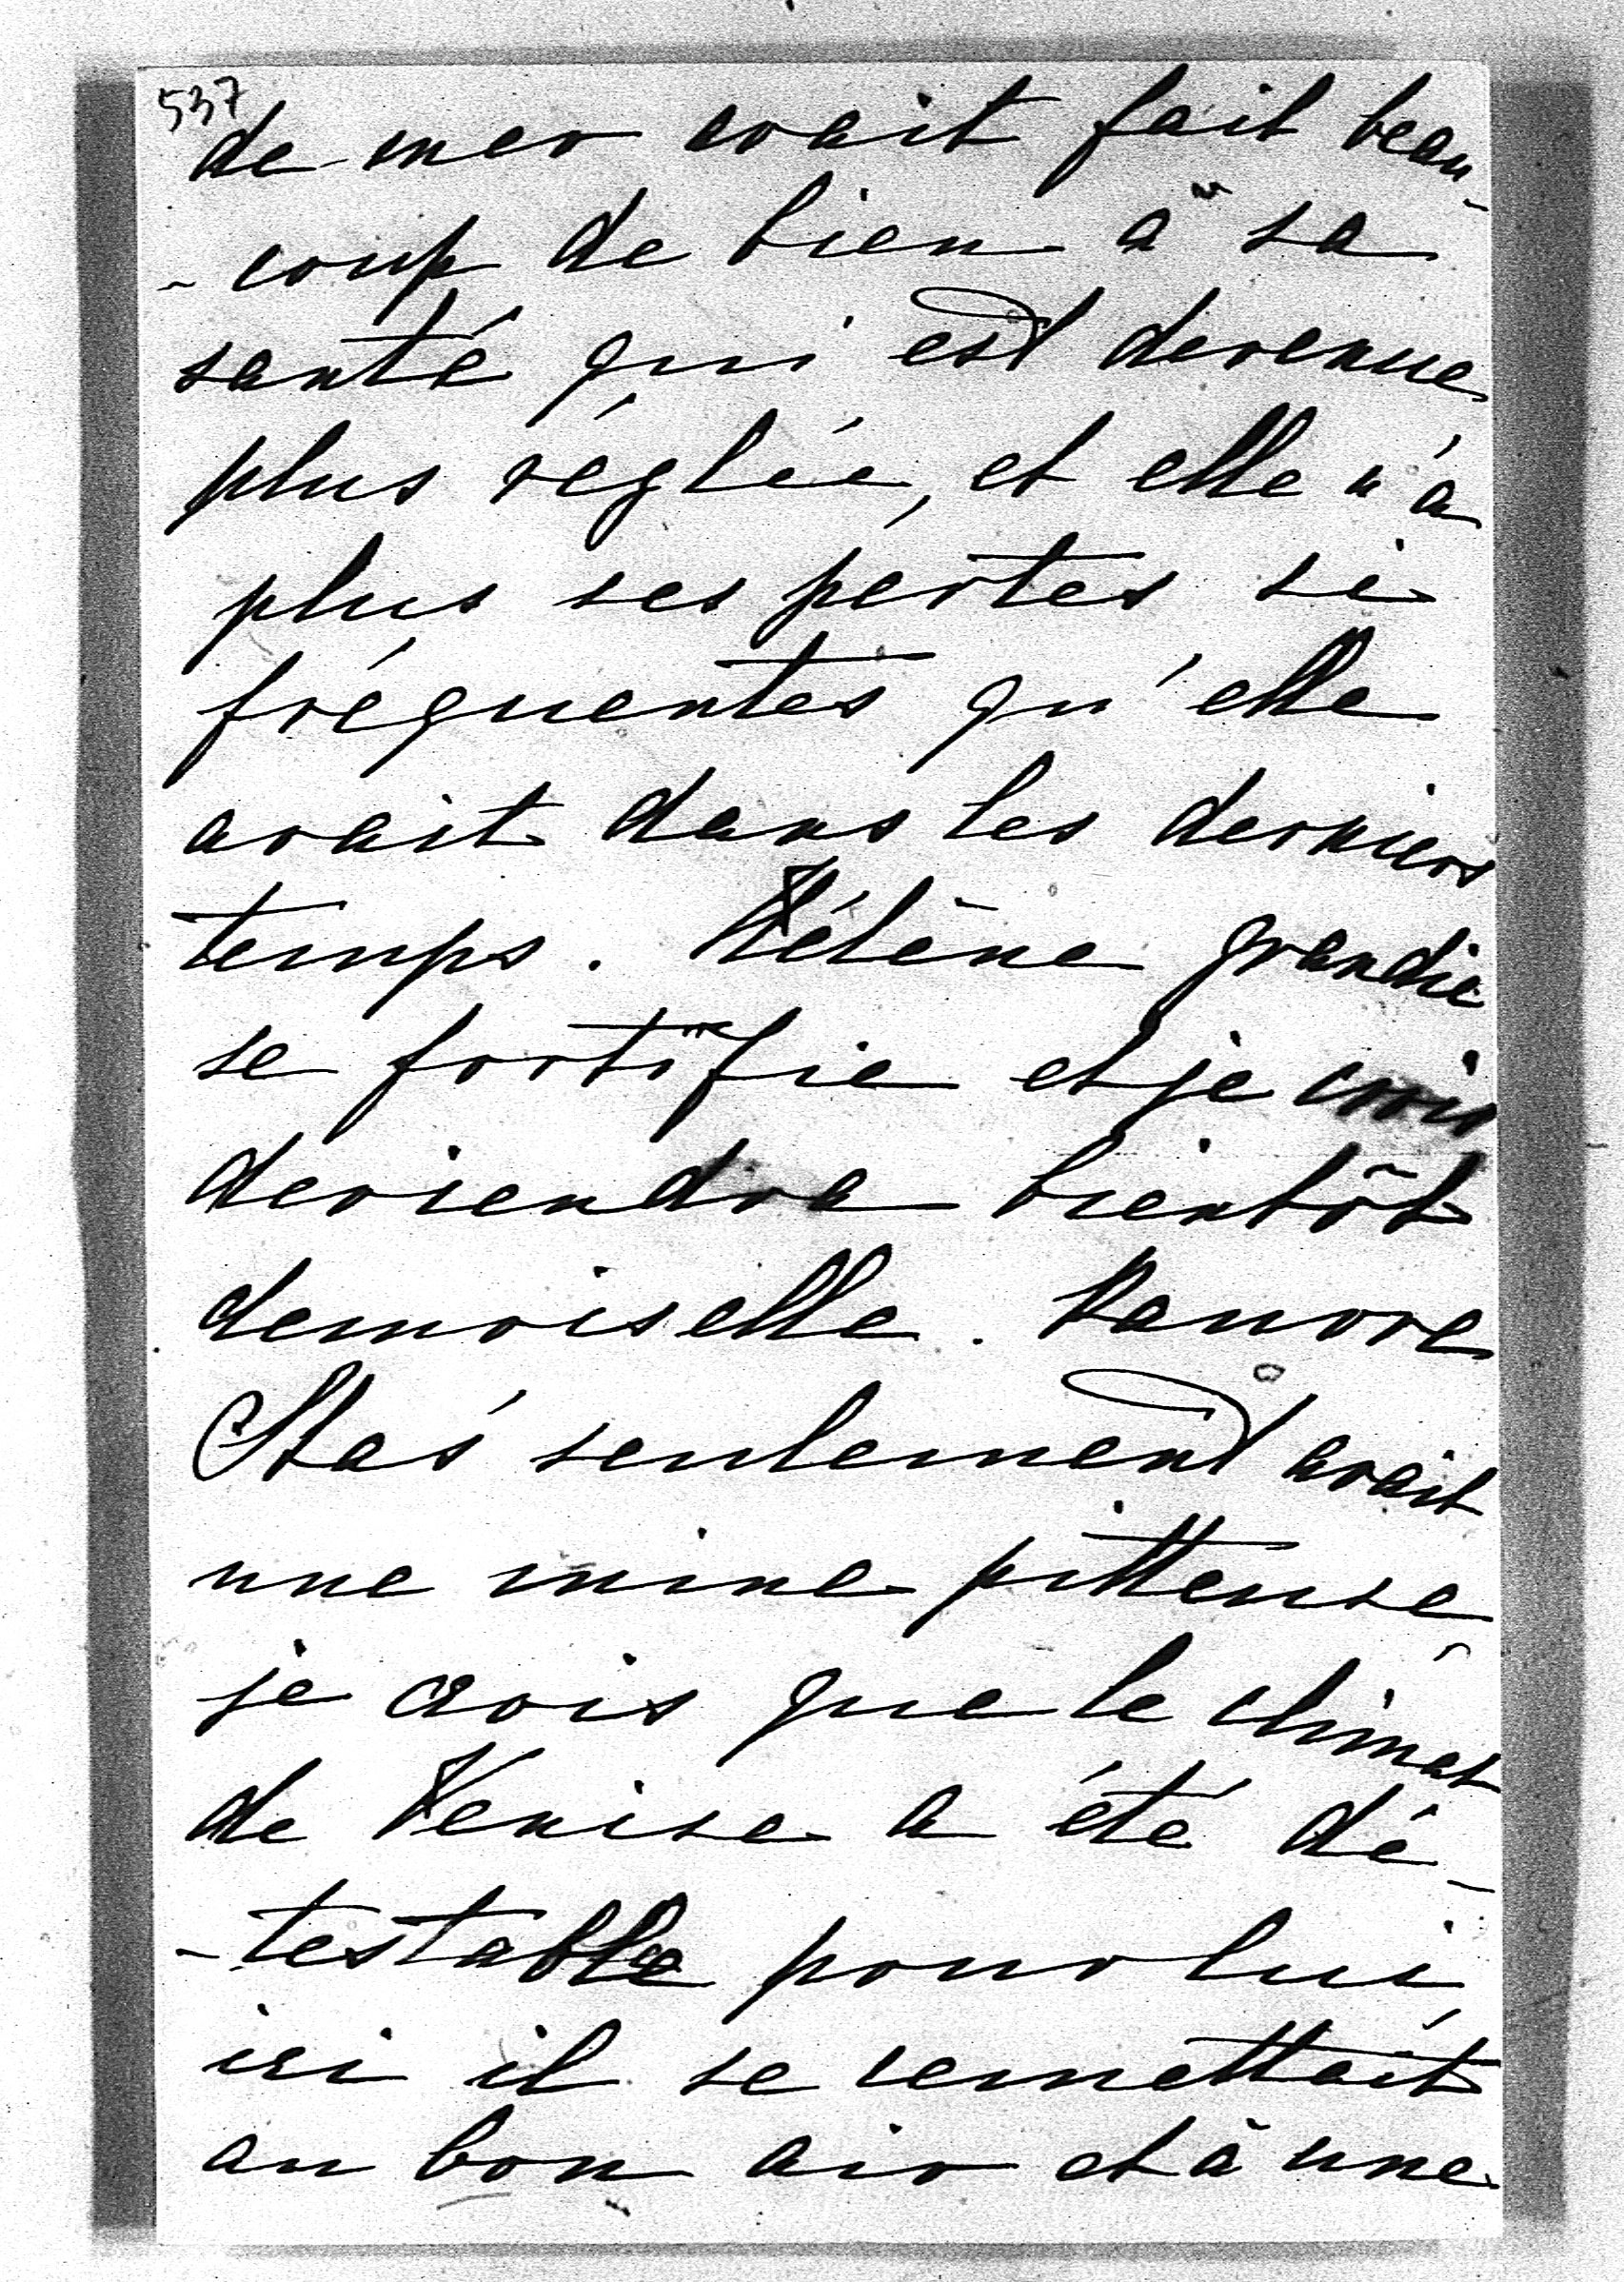 537
de mer avait fait beau-
-coup de bien à sa
santé qui est devenue
plus réglée, et elle n'a
plus ses pertes si
fréquentes qu'elle
avait dans les derniers
temps. Hélène grandie
se fortifie et je crois
deviendra bientôt
demoiselle. Pauvre
Staś seulement avait
une mine pitteuse
je crois que le climat
de Venise a été dé-
-testable pour lui,
ici il se remettait
au bon air et à une